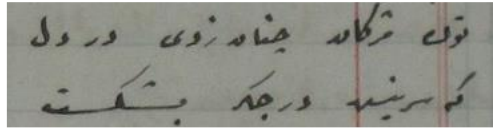 نوک مژگان چنان زدی در دل
که سر نیش در جگر بشکست